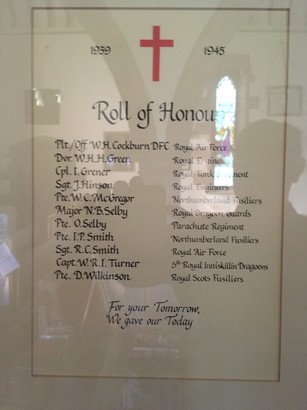 1939 1945
Roll of Honour
Plt./Off. W.H. Cockburn DFC Royal Air Force
Dvr. W.H.H. Green Royal Engineers
Cpl. I. Grener Royal Tank Regiment
Sgt. J. Hinson Royal Engineers
Pte. W.C. McGregor Northumberland Fusiliers
Major N.B. Selby Royal Dragoon Guards
Pte. O. Selby Parachute Regiment
Pte. I.P. Smith Northumberland Fusiliers
Sgt. R.C. Smith Royal Air Force
Capt. W.R.I. Turner 5th Royal Inniskillin Dragoons
Pte. D. Wilkinson Royal Scots Fusiliers
For your Tomorrow,
We gave our Today